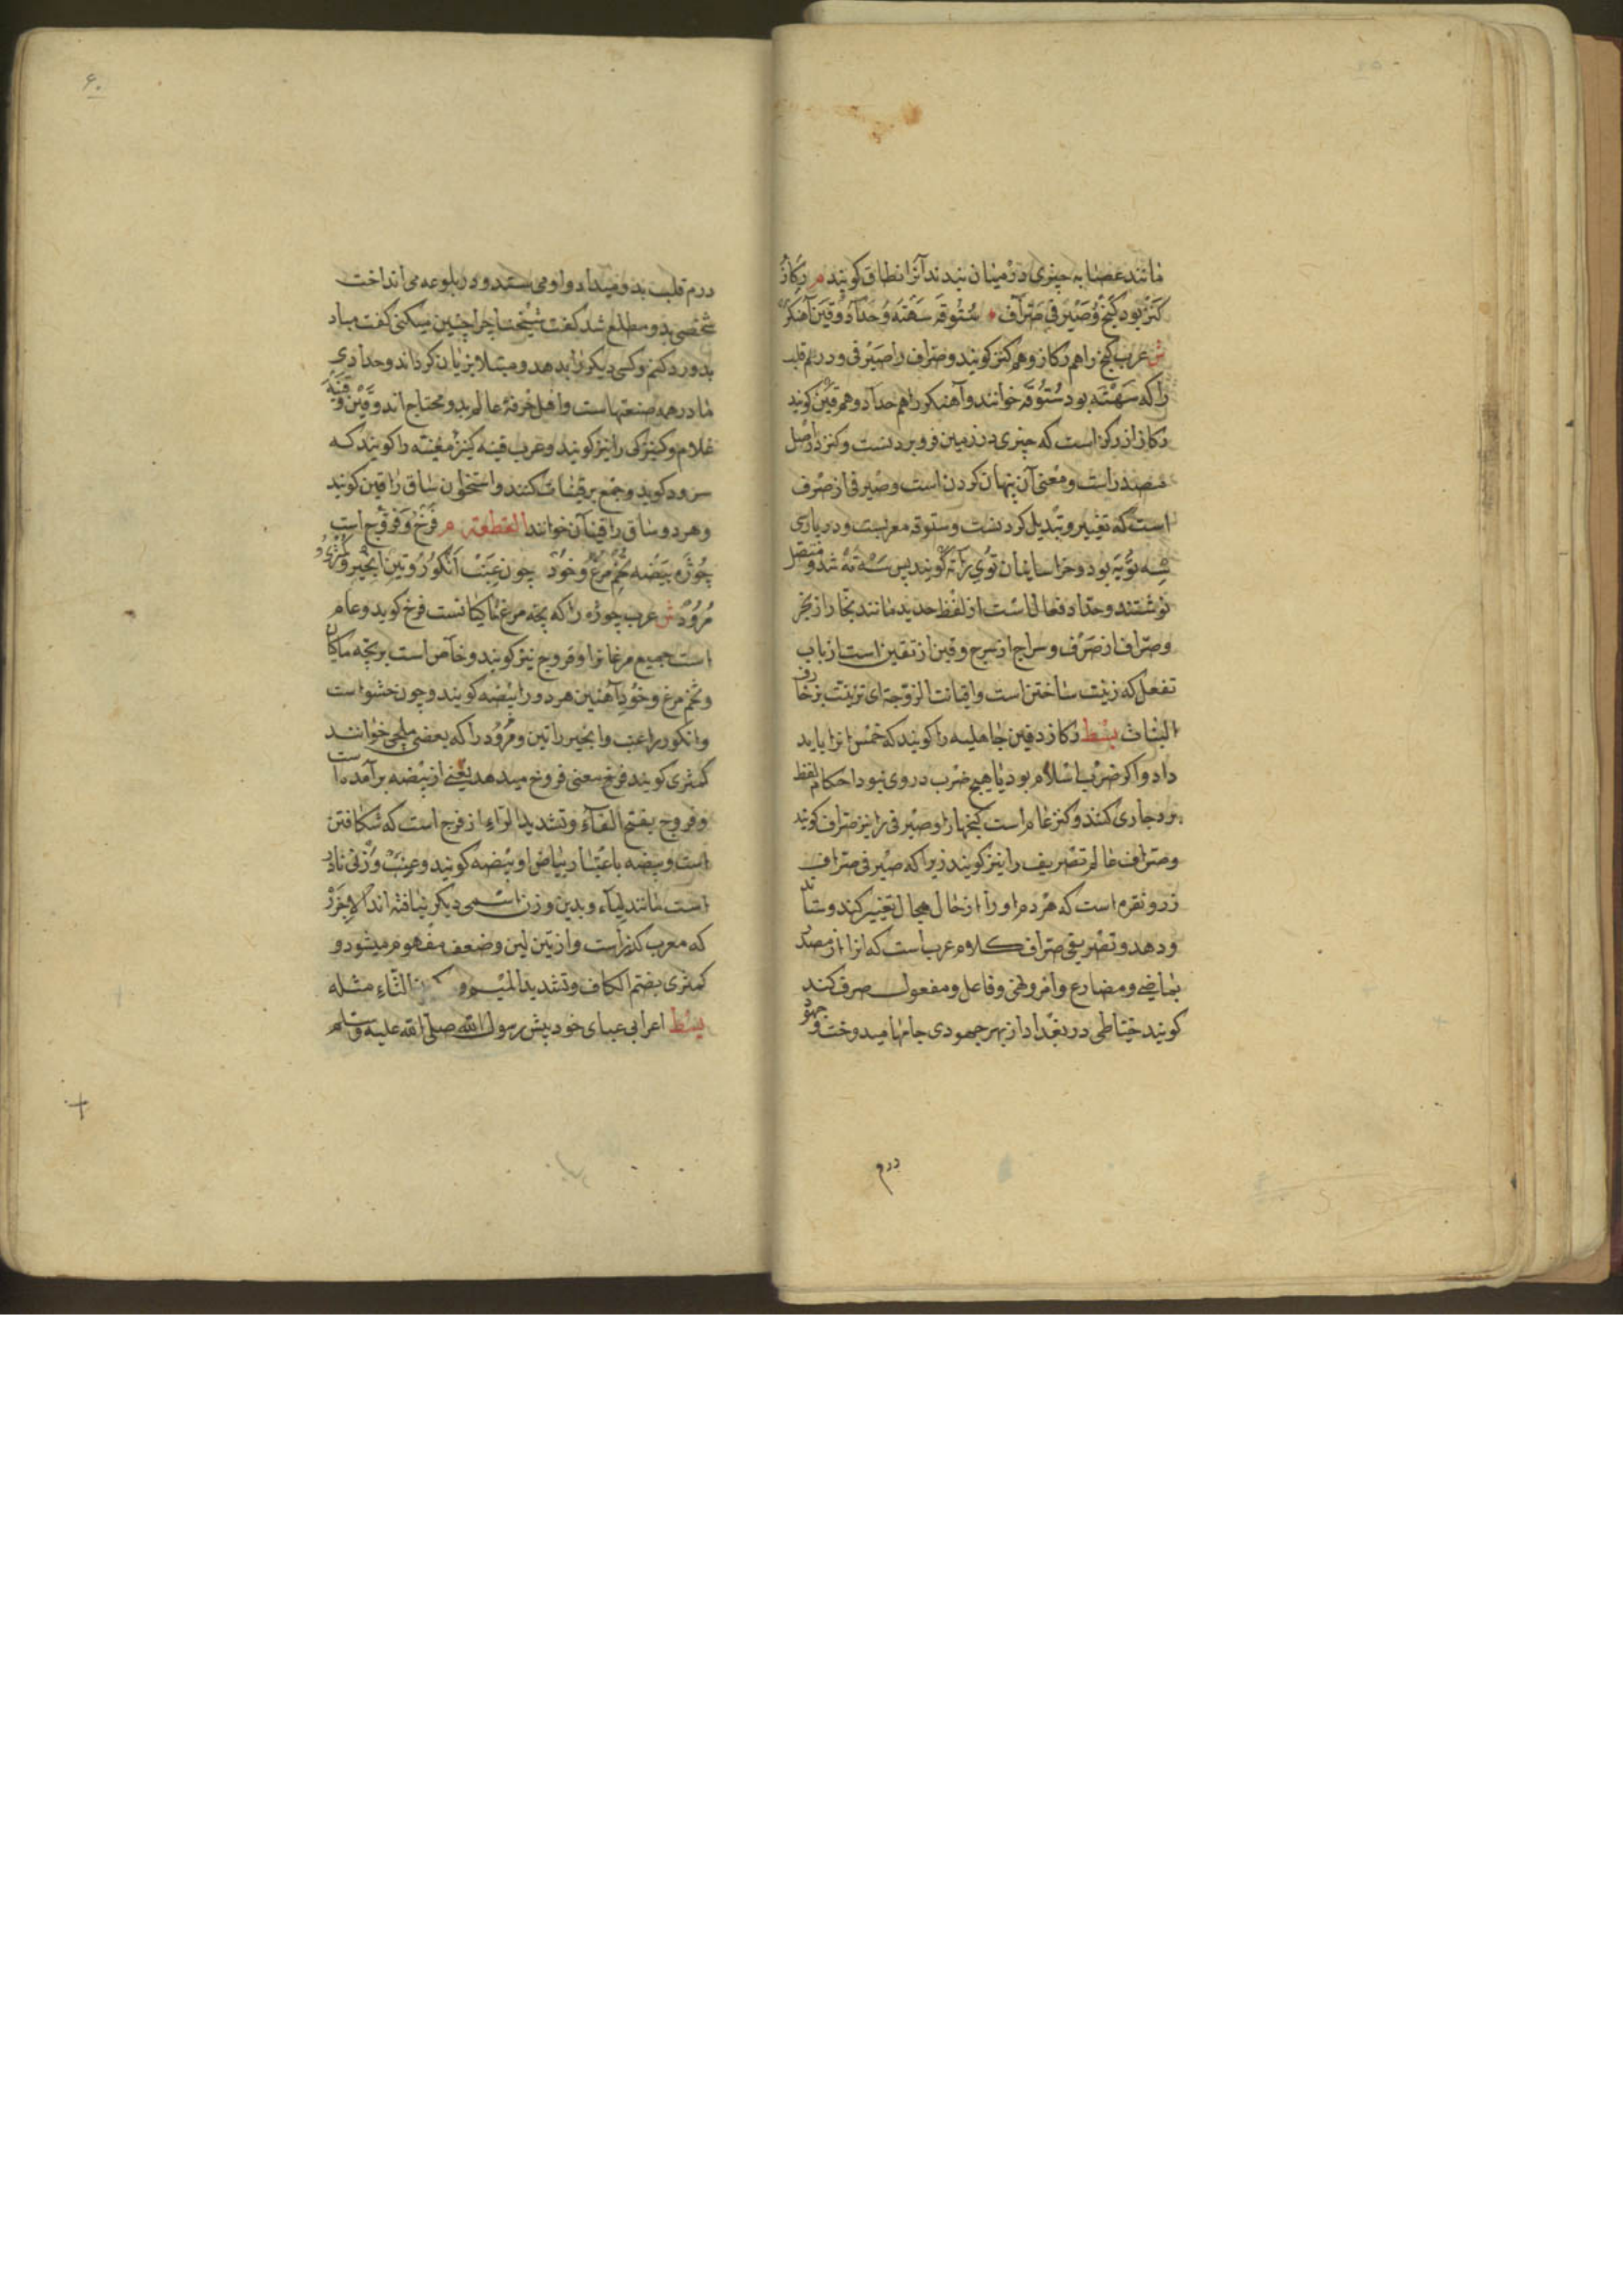 مانند عصابه چیزی در میان بندند آنرا نطاق کویند م رکاز
کنز بود کنج و صیرفی صراف ستوقه سهته و حداد و قین آهنکر
ش عرب کنج را هم رکاز و هم کنز کویند و صراف را صیرفی و درم قلب
را که سهته بود ستوقه خوانند و آهنکر را هم حداد و هم قین کویند
رکاز از رکز است که چیزی در زمین فرو بردنست و کنز در اصل
مصدر است و معنی آن پنهان کردن است و صیرفی از صرف
است که تغییر و تبدیل کردنست و ستوقه معربست و در پارسی
سه تویه بود و خراسانیان توی را ته کویند پس سه ته شد و متصل
نوشتند و حداد فعالی است از لفظ حدید مانند نجار از نجر
و صراف از صرف و سراج از سرج و قین از تقین است از باب
تفعل که زینت ساختن است و اقیانت الروضة ای تزینت بزخارف
النبات بسط رکاز دفین جاهلیه را کویند که خمس انرا باید
داد و اکر ضرب اسلام بود یا هیچ ضرب در وی نبود احکام لقطه
برو جاری کنند و کنز عام است کنجها را و صیرفی را نیز صراف کویند
و صراف عالم تصریف را نیز کویند زیرا که صیرفی صراف
زر و نقره است که هر دم او را از حال بحال تغییر کند و ستاند
و دهد و تصریفی صراف کلام عرب است که انرا از مصدر
بماضی و مضارع و امر و نهی و فاعل و مفعول صرف کند
کویند خیاطی در بغداد از بهر جهودی جامها میدوخت و جهود
درم
۶۰
درم قلب بدو میداد و او می ستد و در بلوعه می انداخت
شخصی بدو مطلع شد کفت شیخنا چرا چنین میکنی کفت مباد
بدو رد کنم و کسی دیکر را بدهد و مبتلا بزیان کرداند و حدادی
مادر همه صنعتهاست و اهل حرفهٔ عالم بدو محتاج اند و قین و قینه
غلام و کنیزکی را نیز کویند و عرب قینه کنیز مغنیه را کویند که
سرود کوید و جمع بر قینات کنند و استخوان ساق را قین کویند
و هر دو ساق را قینان خوانند القطعة م فرخ و فروج است
جوزه بیضه تخم مرغ و خود چون عنب انکور و تین انجیر و کمثری
مرود ش عرب جوزه را که بچه مرغ ماکیانست فرخ کوید و عام
است جمیع مرغانرا و فروج نیز کویند و خاص است بر بچه ماکیان
و تخم مرغ و خود آهنین هر دو را بیضه کویند و چون خشواست
و انکور را عنب و انجیر را تین و مرود را که بعضی ملجی خوانند
کمثری کویند فرخ معنی فروخ میدهد یعنی از بیضه بر آمده است
و فروج بفتح الفاء و تشدید الراء از فرج است که شکافتن
است و بیضه باعتبار بیاض او بیضه کویند و عنب وزنی نادر
است مانند لیآء و بدین وزن اسمی دیکر نیافته اند الا جزر
که معرب کزر است و از تین لین و ضعف مفهوم میشود و
کمثری بضم الکاف و تشدید المیم و الثاء مثله
بسط اعرابی عبای خود پیش رسول الله صلی الله علیه و سلم